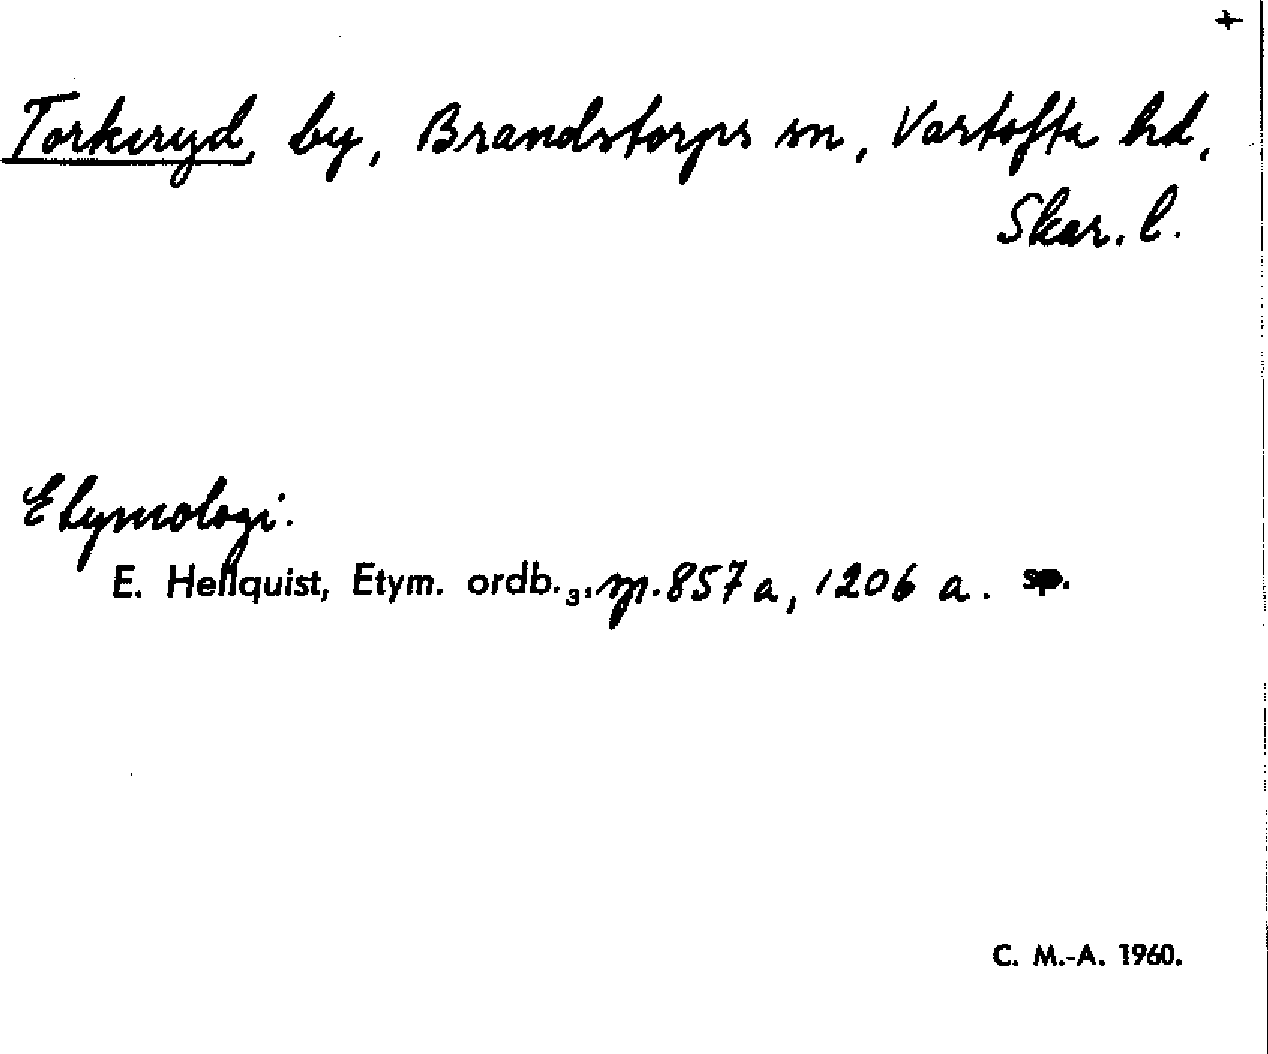 +
Torkeryd, by, Brandstorps sn, Vartofta hd,
Skar. l.
Etymologi.
E. Hellquist, Etym. ordb.3, sp. 857 a, 1206 a. sp.
C. M.-A. 1960.